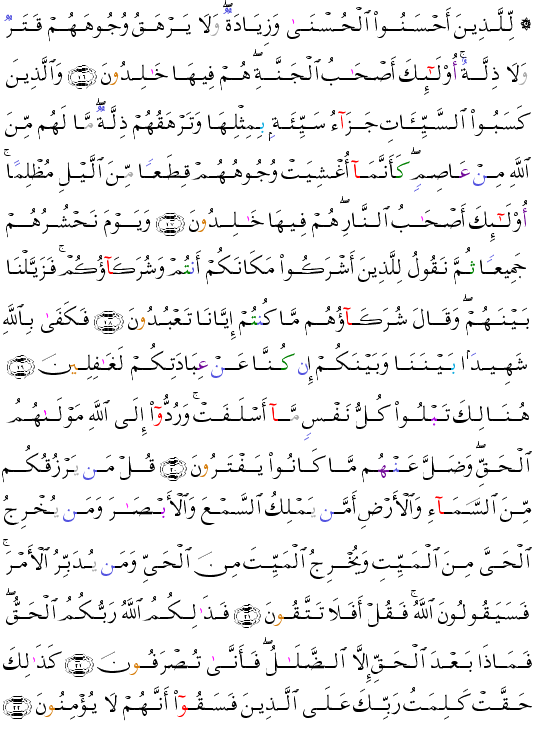 ۞ لِّلَّذِينَ أَحْسَنُوا۟ ٱلْحُسْنَىٰ وَزِيَادَةٌۭ ۖ وَلَا يَرْهَقُ وُجُوهَهُمْ قَتَرٌۭ
وَلَا ذِلَّةٌ ۚ أُو۟لَـٰٓئِكَ أَصْحَـٰبُ ٱلْجَنَّةِ ۖ هُمْ فِيهَا خَـٰلِدُونَ ﴿٢٦﴾ وَٱلَّذِينَ
كَسَبُوا۟ ٱلسَّيِّـَٔاتِ جَزَآءُ سَيِّئَةٍۭ بِمِثْلِهَا وَتَرْهَقُهُمْ ذِلَّةٌۭ ۖ مَّا لَهُم مِّنَ
ٱللَّهِ مِنْ عَاصِمٍۢ ۖ كَأَنَّمَآ أُغْشِيَتْ وُجُوهُهُمْ قِطَعًۭا مِّنَ ٱلَّيْلِ مُظْلِمًا ۚ
أُو۟لَـٰٓئِكَ أَصْحَـٰبُ ٱلنَّارِ ۖ هُمْ فِيهَا خَـٰلِدُونَ ﴿٢٧﴾ وَيَوْمَ نَحْشُرُهُمْ
جَمِيعًۭا ثُمَّ نَقُولُ لِلَّذِينَ أَشْرَكُوا۟ مَكَانَكُمْ أَنتُمْ وَشُرَكَآؤُكُمْ ۚ فَزَيَّلْنَا
بَيْنَهُمْ ۖ وَقَالَ شُرَكَآؤُهُم مَّا كُنتُمْ إِيَّانَا تَعْبُدُونَ ﴿٢٨﴾ فَكَفَىٰ بِٱللَّهِ
شَهِيدًۢا بَيْنَنَا وَبَيْنَكُمْ إِن كُنَّا عَنْ عِبَادَتِكُمْ لَغَـٰفِلِينَ ﴿٢٩﴾
هُنَالِكَ تَبْلُوا۟ كُلُّ نَفْسٍۢ مَّآ أَسْلَفَتْ ۚ وَرُدُّوٓا۟ إِلَى ٱللَّهِ مَوْلَىٰهُمُ
ٱلْحَقِّ ۖ وَضَلَّ عَنْهُم مَّا كَانُوا۟ يَفْتَرُونَ ﴿٣٠﴾ قُلْ مَن يَرْزُقُكُم
مِّنَ ٱلسَّمَآءِ وَٱلْأَرْضِ أَمَّن يَمْلِكُ ٱلسَّمْعَ وَٱلْأَبْصَـٰرَ وَمَن يُخْرِجُ
ٱلْحَىَّ مِنَ ٱلْمَيِّتِ وَيُخْرِجُ ٱلْمَيِّتَ مِنَ ٱلْحَىِّ وَمَن يُدَبِّرُ ٱلْأَمْرَ ۚ
فَسَيَقُولُونَ ٱللَّهُ ۚ فَقُلْ أَفَلَا تَتَّقُونَ ﴿٣١﴾ فَذَٰلِكُمُ ٱللَّهُ رَبُّكُمُ ٱلْحَقُّ ۖ
فَمَاذَا بَعْدَ ٱلْحَقِّ إِلَّا ٱلضَّلَـٰلُ ۖ فَأَنَّىٰ تُصْرَفُونَ ﴿٣٢﴾ كَذَٰلِكَ
حَقَّتْ كَلِمَتُ رَبِّكَ عَلَى ٱلَّذِينَ فَسَقُوٓا۟ أَنَّهُمْ لَا يُؤْمِنُونَ ﴿٣٣﴾